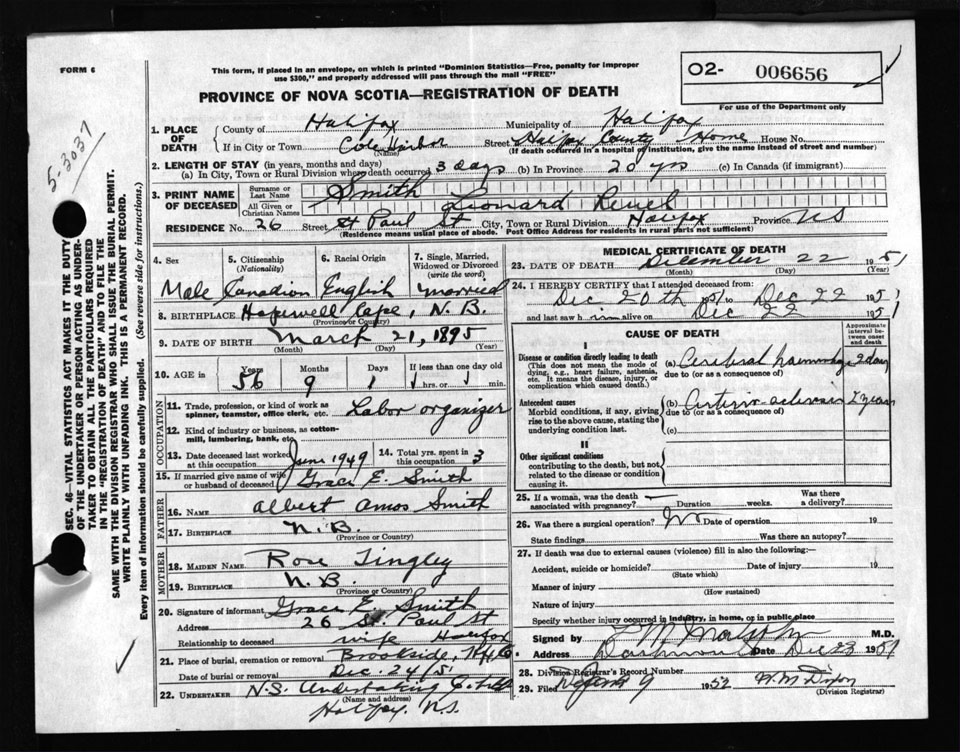 FORM 6
This form, if placed in an envelope, on which is printed "Dominion Statistics—Free, penalty for improper
use $300," and properly addressed will pass through the mail "FREE"
O2- 006656
For use of the Department only
PROVINCE OF NOVA SCOTIA—REGISTRATION OF DEATH
5.3037
SEC. 46—VITAL STATISTICS ACT MAKES IT THE DUTY
OF THE UNDERTAKER OR PERSON ACTING AS UNDER-
TAKER TO OBTAIN ALL THE PARTICULARS REQUIRED
IN THE "REGISTRATION OF DEATH" AND TO FILE THE
SAME WITH THE DIVISION REGISTRAR WHO SHALL ISSUE THE BURIAL PERMIT.
WRITE PLAINLY WITH UNFADING INK. THIS IS A PERMANENT RECORD.
Every item of information should be carefully supplied. (See reverse side for instructions.)
1. PLACE OF DEATH
County of Halifax Municipality of Halifax
If in City or Town Cole Harbor Street Halifax County Home House No.
(Name) (If death occurred in a hospital or institution, give the name instead of street and number)
2. LENGTH OF STAY (in years, months and days)
(a) In City, Town or Rural Division where death occurred 3 days (b) In Province 20 yrs (c) In Canada (if immigrant)
3. PRINT NAME OF DECEASED
Surname or Last Name Smith
All Given or Christian Names Leonard
RESIDENCE No. 26 Street St Paul St City, Town or Rural Division Halifax Province NS
(Residence means usual place of abode. Post Office Address for residents in rural parts not sufficient)
4. Sex Male
5. Citizenship (Nationality) Canadian
6. Racial Origin English
7. Single, Married, Widowed or Divorced (write the word) married
8. BIRTHPLACE Hopewell Cape, N.B.
(Province or Country)
9. DATE OF BIRTH March 21, 1895
(Month) (Day) (Year)
10. AGE in Years 56 Months 9 Days 1 If less than one day old hrs. or min.
OCCUPATION
11. Trade, profession, or kind of work as spinner, teamster, office clerk, etc. Labor organizer
12. Kind of industry or business, as cotton-mill, lumbering, bank, etc.
13. Date deceased last worked at this occupation June 1949
14. Total yrs. spent in this occupation 3
15. If married give name of wife or husband of deceased Grace E. Smith
FATHER
16. NAME Albert Amos Smith
17. BIRTHPLACE N.B.
(Province or Country)
MOTHER
18. MAIDEN NAME Rose Tingley
19. BIRTHPLACE N.B.
(Province or Country)
20. Signature of informant Grace E. Smith
Address 26 St. Paul St
Relationship to deceased wife Halifax
21. Place of burial, cremation or removal Brookside,
Date of burial or removal Dec. 24/51
22. UNDERTAKER N.S. Undertaking Co. Ltd
(Name and address)
Halifax. N.S.
MEDICAL CERTIFICATE OF DEATH
23. DATE OF DEATH December 22 1951
(Month) (Day) (Year)
24. I HEREBY CERTIFY that I attended deceased from
Dec 20th 1951 to Dec 22 1951
and last saw him alive on Dec 22 1951
CAUSE OF DEATH
Approximate interval between onset and death
I
Disease or condition directly leading to death
(This does not mean the mode of dying, e.g., heart failure, asthenia, etc. It means the disease, injury, or complication which caused death.)
(a) Cerebral haemorrhage 2 days
due to (or as a consequence of)
Antecedent causes
Morbid conditions, if any, giving rise to the above cause, stating the underlying condition last.
(b) Arterio-sclerosis 2 years
due to (or as a consequence of)
(c)
II
Other significant conditions
contributing to the death, but not related to the disease or condition causing it.
25. If a woman, was the death associated with pregnancy? Duration weeks. Was there a delivery?
26. Was there a surgical operation? No Date of operation 19
State findings Was there an autopsy?
27. If death was due to external causes (violence) fill in also the following:—
Accident, suicide or homicide? Date of injury 19
(State which)
Manner of injury
(How sustained)
Nature of injury
Specify whether injury occurred in industry, in home, or in public place
Signed by M.D.
Address Dartmouth Date Dec 23 1951
28. Division Registrar's Record Number
29. Filed 9 1952 W.M. Dixon
(Division Registrar)